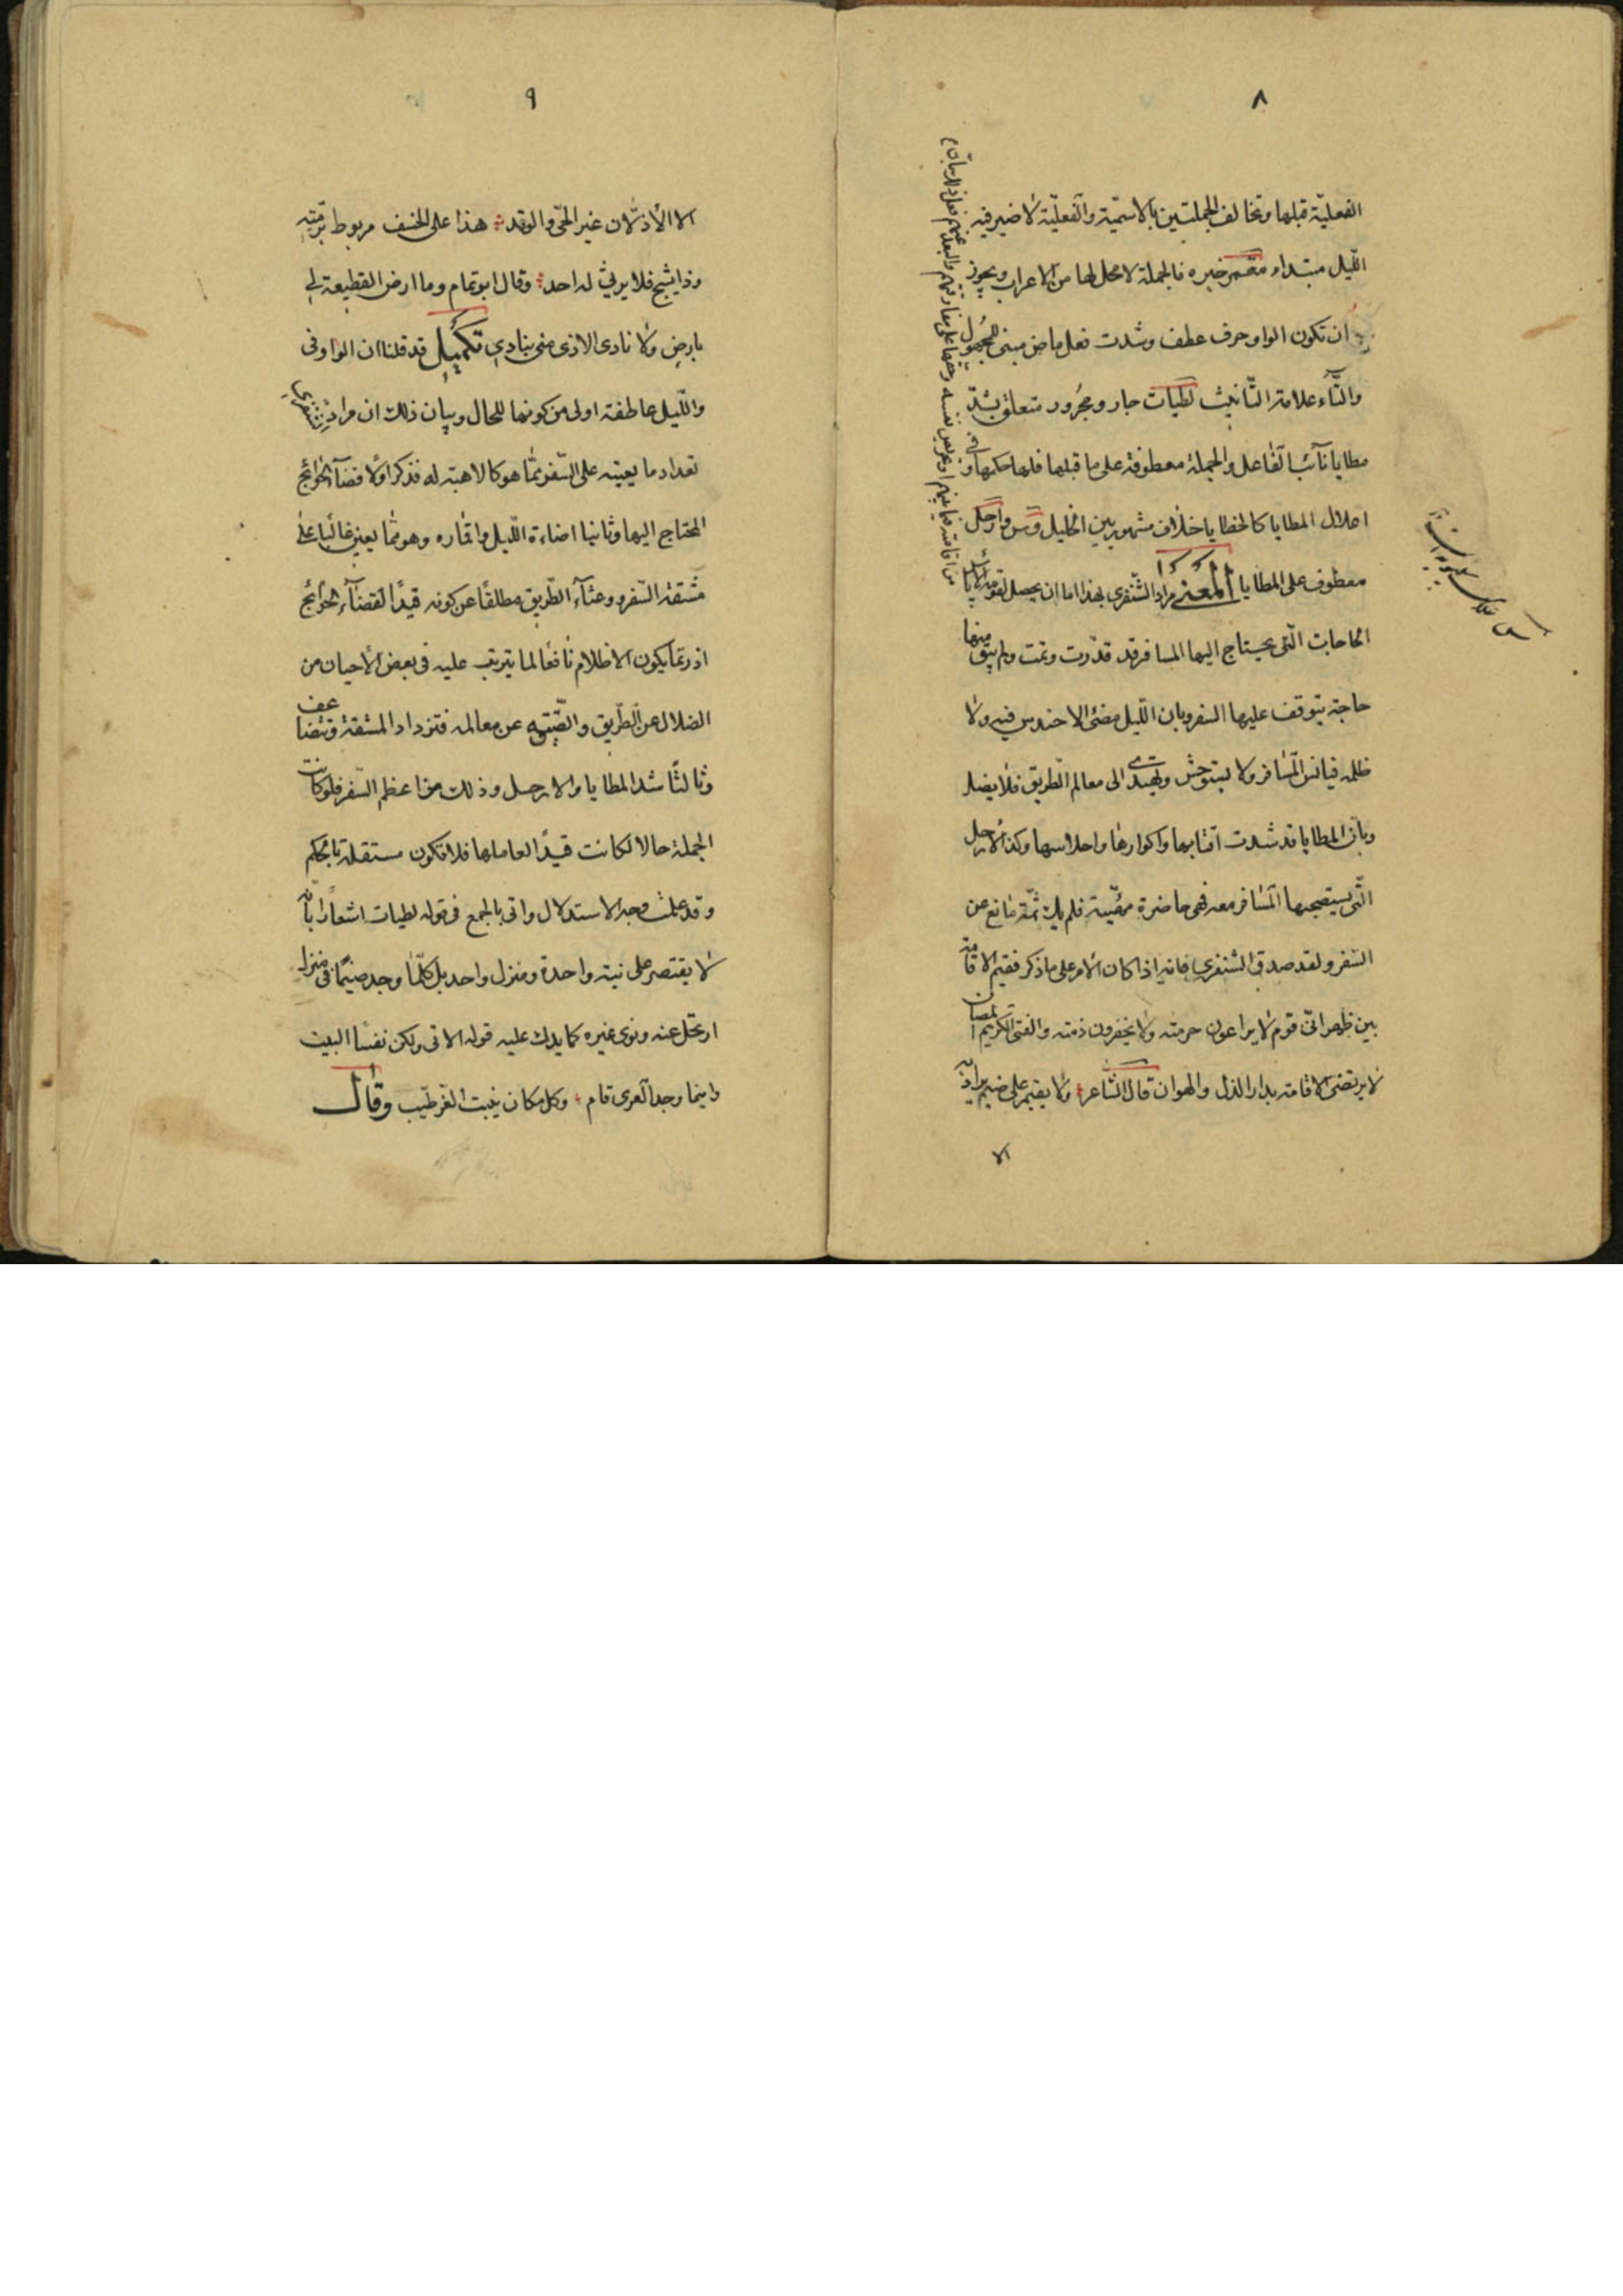 ٨
الفعليّة قبلها وتخالف الجملتين بالاسميّة والفعليّة لا ضير فيه
اللّيل مبتداء مقمر خبره فالجملة لا محل لها من الاعراب ويجوز
ان تكون الواو حرف عطف وشدت فعل ماض مبنى للمجهول
والتّاء علامة التّانيث لطيات جار ومجرور متعلق بشدّ
مطايا نائب الفاعل والجملة معطوفة على ما قبلها فلها حكمها وفى
اعلال المطايا كالخطايا خلاف مشهور بين الخليل وس وارحل
معطوف على المطايا المعنى مراد الشّنفرى بهذا اما ان يحصل لقومه
الحاجات الّتى يحتاج اليها المسافر قد قدّرت وتمت ولم يبق منها
حاجة يتوقف عليها السفر وبان اللّيل مضئ لا حندس فيه ولا
ظلمة فيانس المسافر ولا يستوحش ويهتدى الى معالم الطّريق فلا يضل
وبان المطايا قد شدت اقتابها واكوارها واحلاسها وكذا الارحل
الّتى يستصحبها المسافر معه فهى حاضرة مهيّة فلم يك ثمّة مانع عن
السّفر ولقد صدق الشنفرى فانه اذا كان الامر على ما ذكر فقيم الاقامة
بين ظهرانى قوم لا يراعون حرمته ولا يخفرون ذمته والفتى الكريم
لا يرتضى الاقامة بدار الذل والهوان قال الشّاعر ولا يقيم على ضيم يراد به
الا
٩
الا الأذلّان غير الحىّ والوتد هذا على الخسف مربوط برمّته
وذا يشج فلا يرثى له احد وقال ابو تمام وما ارض القطيعة لى
بارض ولا نادى الاذى منى بنادى تكميل قد قلنا ان الواو فى
واللّيل عاطفة اولى من كونها للحال وبيان ذلك ان مراد الشنفرى
تعداد ما يعينه على السّفر ممّا هو كالاهبة له فذكر اولا قضاء الحوائج
المحتاج اليها وثانيا اضاءة اللّيل واقماره وهو ممّا يعين غالبا على
مشقة السّفر ووعثاء الطّريق مطلقًا عن كونه قيدًا لقضاء الحوائج
اذ ربّما يكون الاظلام نافعًا لما يترتب عليه فى بعض الاحيان من
الضلال عن الطّريق والتّيه عن معالمه فتزداد المشقة وتتضاعف
وثالثًا شد المطايا والارحل وذلك من اعظم السّفر فلو كانت
الجملة حالا لكانت قيدًا لعاملها فلا تكون مستقلة بالحكم
وقد علمت وجه الاستدلال واتى بالجمع فى قوله لطيات اشعارًا بانّه
لا يقتصر على نية واحدة ومنزل واحد بل كلّما وجد ضيمًا فى منزل
ارتحل عنه ونوى غيره كما يدلك عليه قوله الاتى ولكن نفسًا البيت
واينما وجد العزى قام وكل مكان ينبت العز طيّب وقال